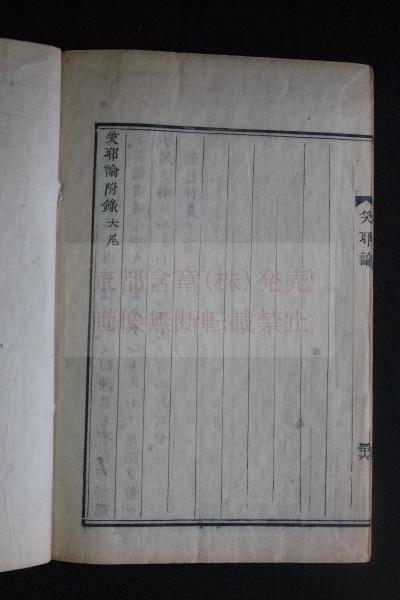 笑耶論
三十六
笑耶論附錄大尾
京都含章(株)発売
画像無断転載禁止